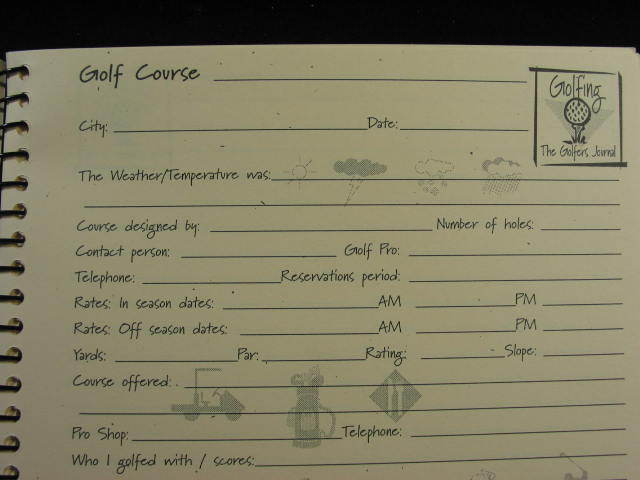 Golf Course
Golfing
City: Date:
The Golfers Journal
The Weather/Temperature was:
Course designed by: Number of holes:
Contact person: Golf Pro:
Telephone: Reservations period:
Rates: In season dates: AM PM
Rates: Off season dates: AM PM
Yards: Par: Rating: Slope:
Course offered:
Pro Shop: Telephone:
Who I golfed with / scores: